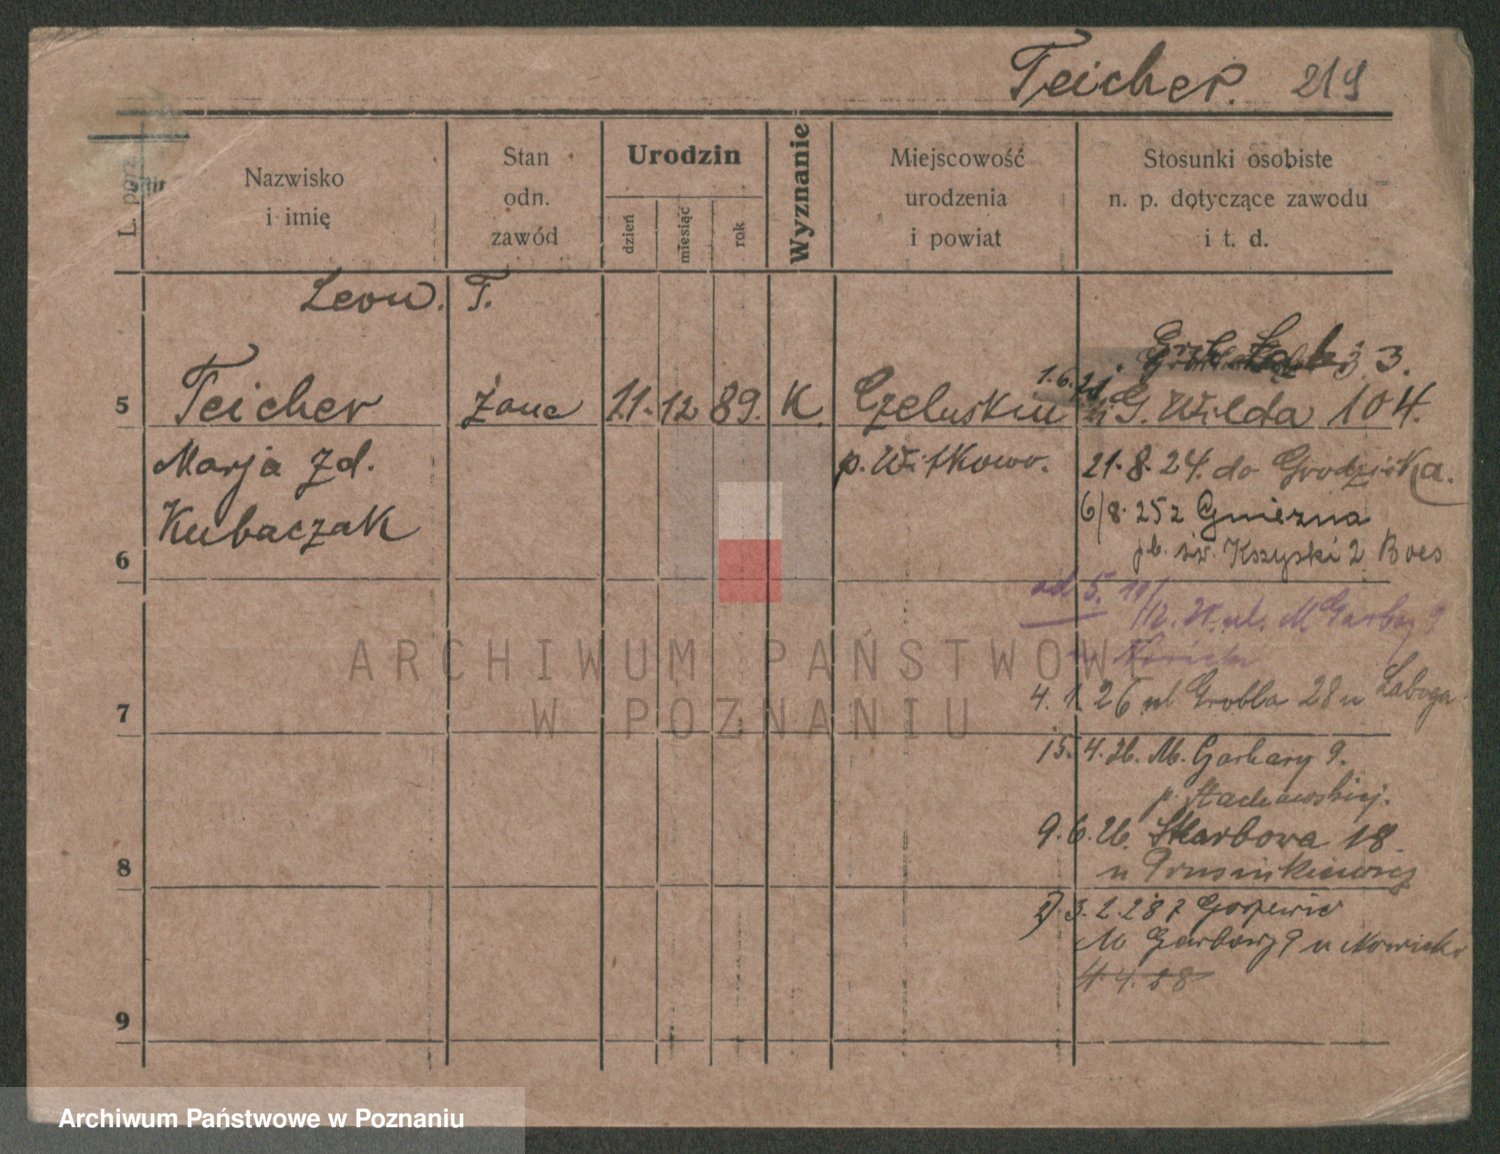 Teicher. 219
L. porz.
Nazwisko
i imię
Stan
odn.
zawód
Urodzin
dzień
miesiąc
rok
Wyznanie
Miejscowość
urodzenia
i powiat
Stosunki osobiste
n. p. dotyczące zawodu
i t. d.
Leon. T.
3.
5 Teicher żona 11. 12 89. K. 1.6.21. G. Wilda 104.
Marja zd. p. Witkowo. 21.8.24. do Grodziska.
Kubaczak 6/8.25 z Gniezna
6
od 5. ul. M Garbary 9
4.1.26 ul Grobla 28 u
7
15.4.26. M. Garbary 9.
9.6.26. Skarbowa 18.
8 u
3.2.28 z
M Garbary 9 u
4.4.28
9
ARCHIWUM PAŃSTWOWE
W POZNANIU
Archiwum Państwowe w Poznaniu